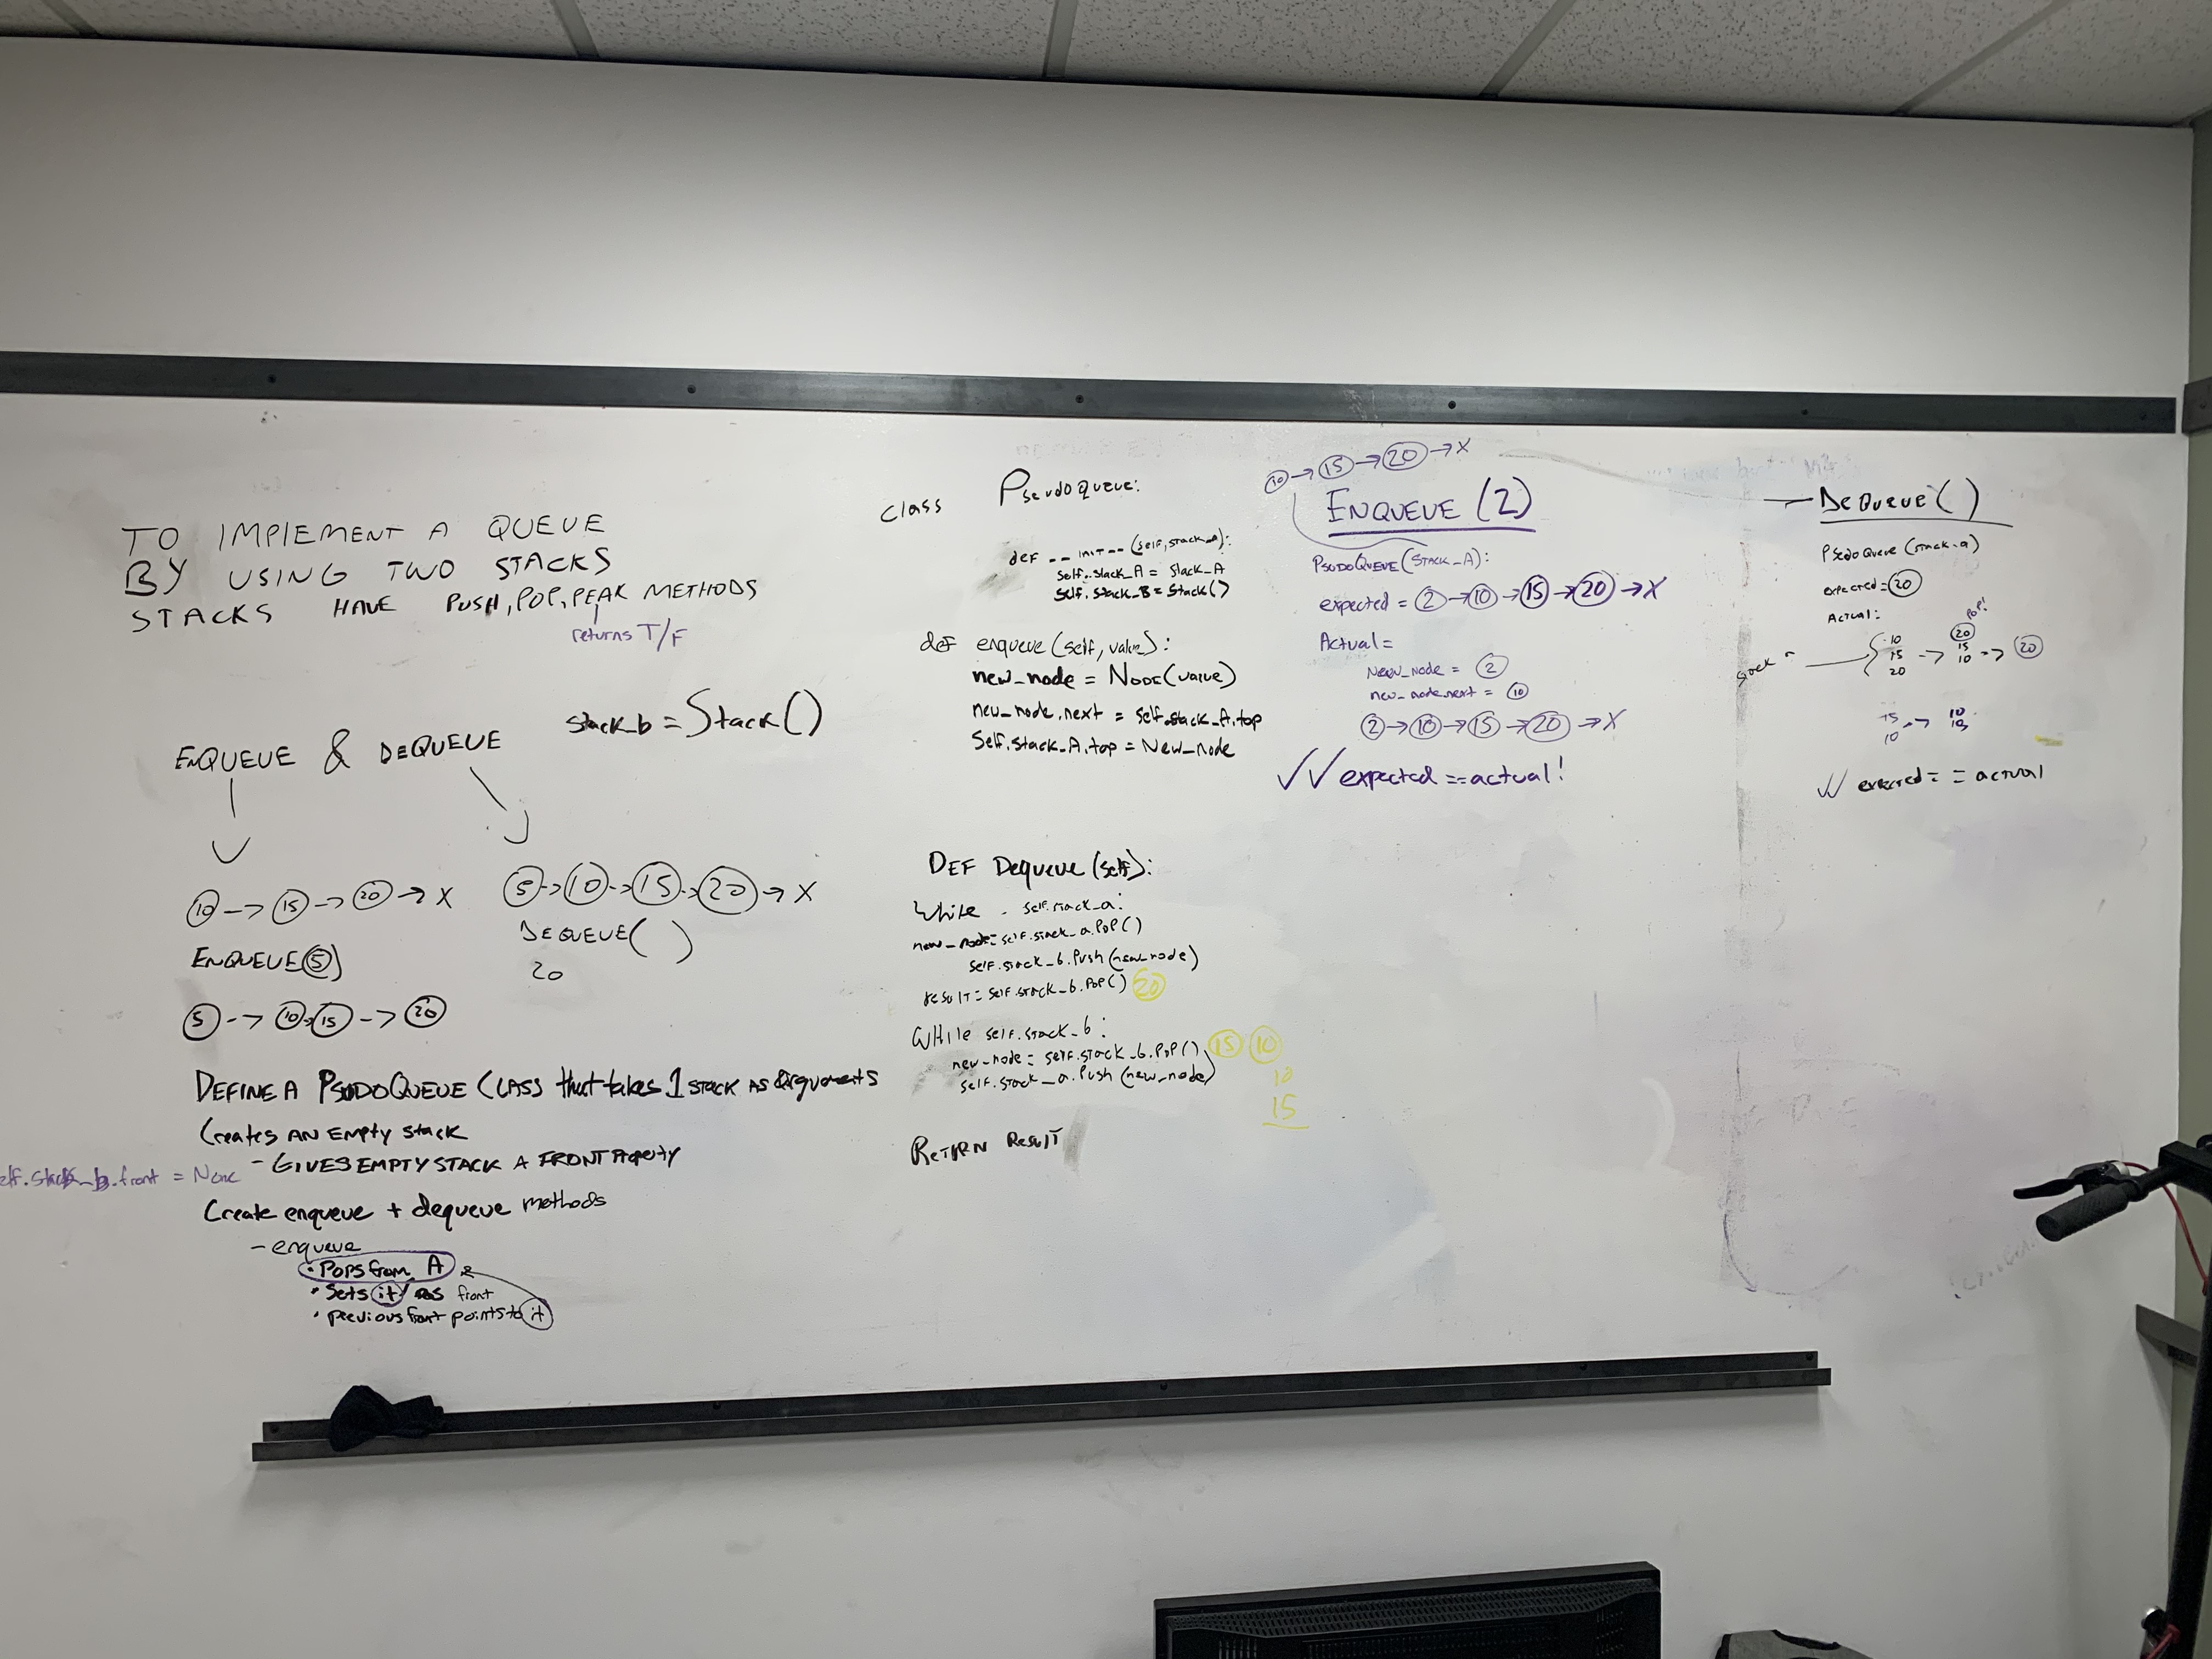 TO IMPLEMENT A QUEUE
BY USING TWO STACKS
STACKS HAVE PUSH, POP, PEAK METHODS
returns T/F
ENQUEUE & DEQUEUE
stack_b = Stack()
10 -> 15 -> 20 -> X
ENQUEUE(5)
5 -> 10 -> 15 -> 20
5 -> 10 -> 15 -> 20 -> X
DEQUEUE( )
20
DEFINE A PSUDOQUEUE CLASS that takes 1 STACK AS arguments
Creates AN EMPTY STACK
- GIVES EMPTY STACK A FRONT Property
elf.stack_b.front = None
Create enqueue + dequeue methods
- enqueue
• POPS from A
• Sets it as front
• previous front points to it
class PseudoQueue:
def __init__(self, stack_a):
self.stack_A = stack_A
self.stack_B = Stack()
def enqueue(self, value):
new_node = NODE(value)
new_node.next = self.stack_A.top
Self.stack_A.top = New_node
DEF Dequeue(self):
While self.stack_a:
new_node = self.stack_a.POP()
self.stack_b.Push(new_node)
result = self.stack_b.POP() 20
WHile self.stack_b:
new_node = self.stack_b.POP() 15 10
self.stack_a.Push(new_node) 10
15
RETURN Result
10 -> 15 -> 20 -> X
ENQUEUE (2)
PSUDOQUEUE(STACK_A):
expected = 2 -> 10 -> 15 -> 20 -> X
Actual =
New_node = 2
new_node.next = 10
2 -> 10 -> 15 -> 20 -> X
✓✓ expected == actual!
DEQUEUE()
PSEDOQUEUE(stack-a)
expected = 20
ACTUAL:
POP!
10 20
15 -> 15 -> 20
20 10
15 -> 10
10
✓✓ expected == actual